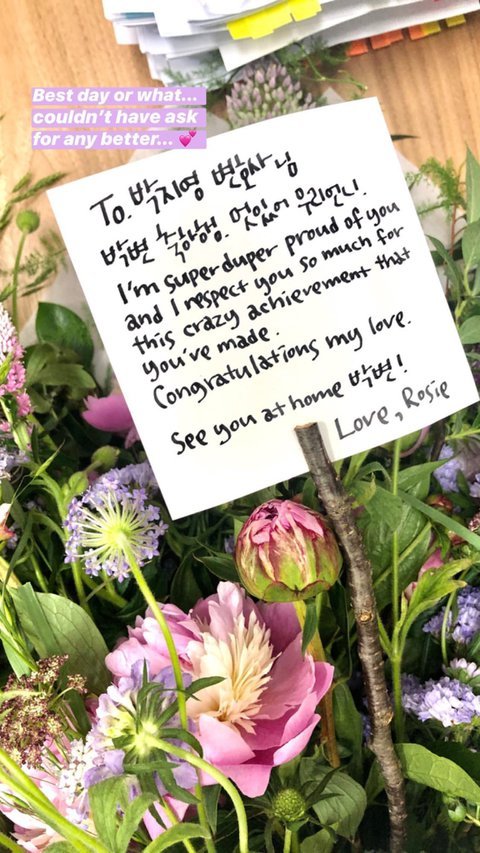 Best day or what...
couldn't have ask
for any better... 💕
To. 박지영 변호사님
박변 축하행. 멋있어 우리언니.
I'm superduper proud of you
and I respect you so much for
this crazy achievement that
you've made.
Congratulations my love.
See you at home 박변!
Love, Rosie